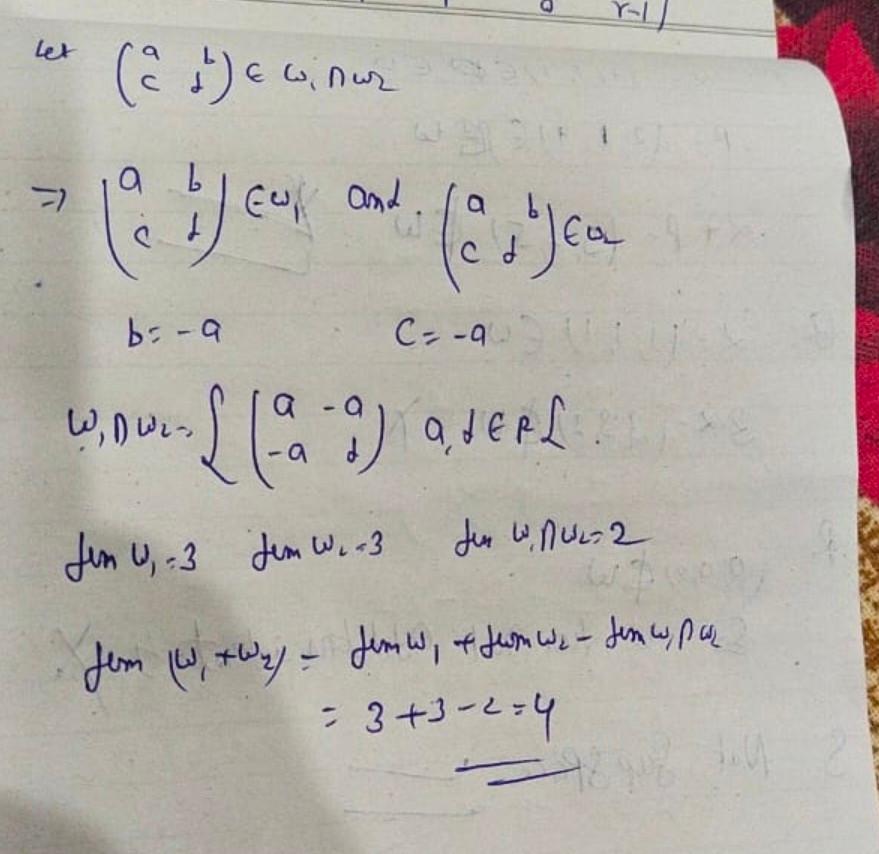 r-1)
Let (a b
c d) ∈ W₁∩W₂
=> (a b
c d) ∈W₁ and (a b
c d) ∈W₂
b = -a c = -a
W₁∩W₂ = { (a -a
-a d) a,d ∈ R }.
dim W₁ = 3 dim W₂ = 3 dim W₁∩W₂ = 2
dim (W₁+W₂) = dim W₁ + dim W₂ - dim W₁∩W₂
= 3+3-2=4